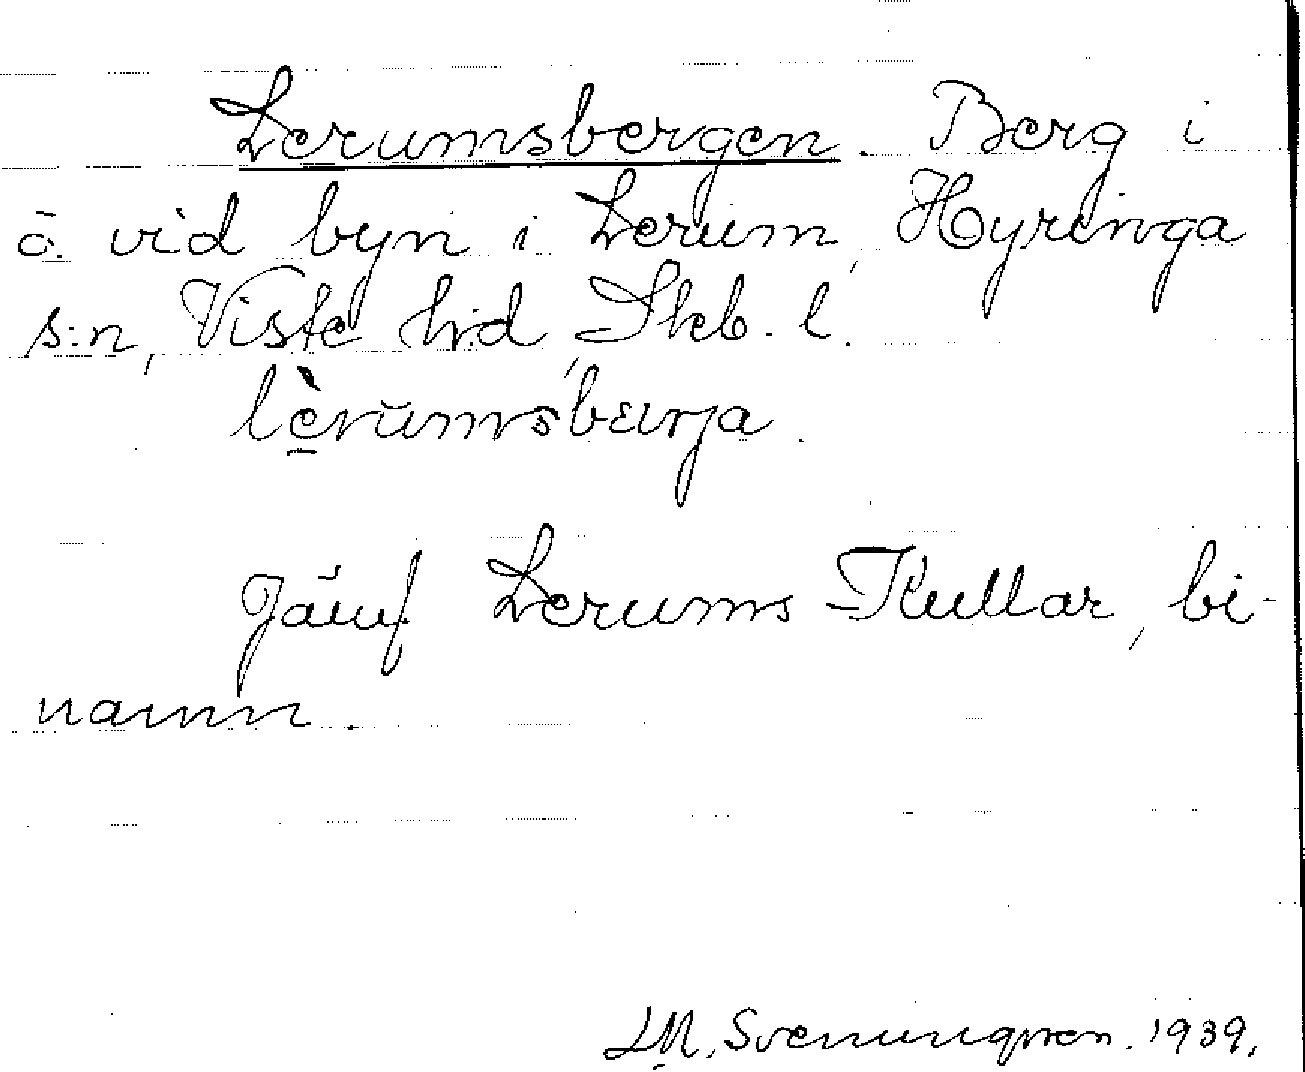 Lerumsbergen. Berg i
ö. vid byn i Lerum, Hyringa
s:n, Viste hd, Skb. l.
lèrŭmsbærja.
Jämf Lerums Kullar, bi-
namn.
J.M. Svenungsson. 1939.